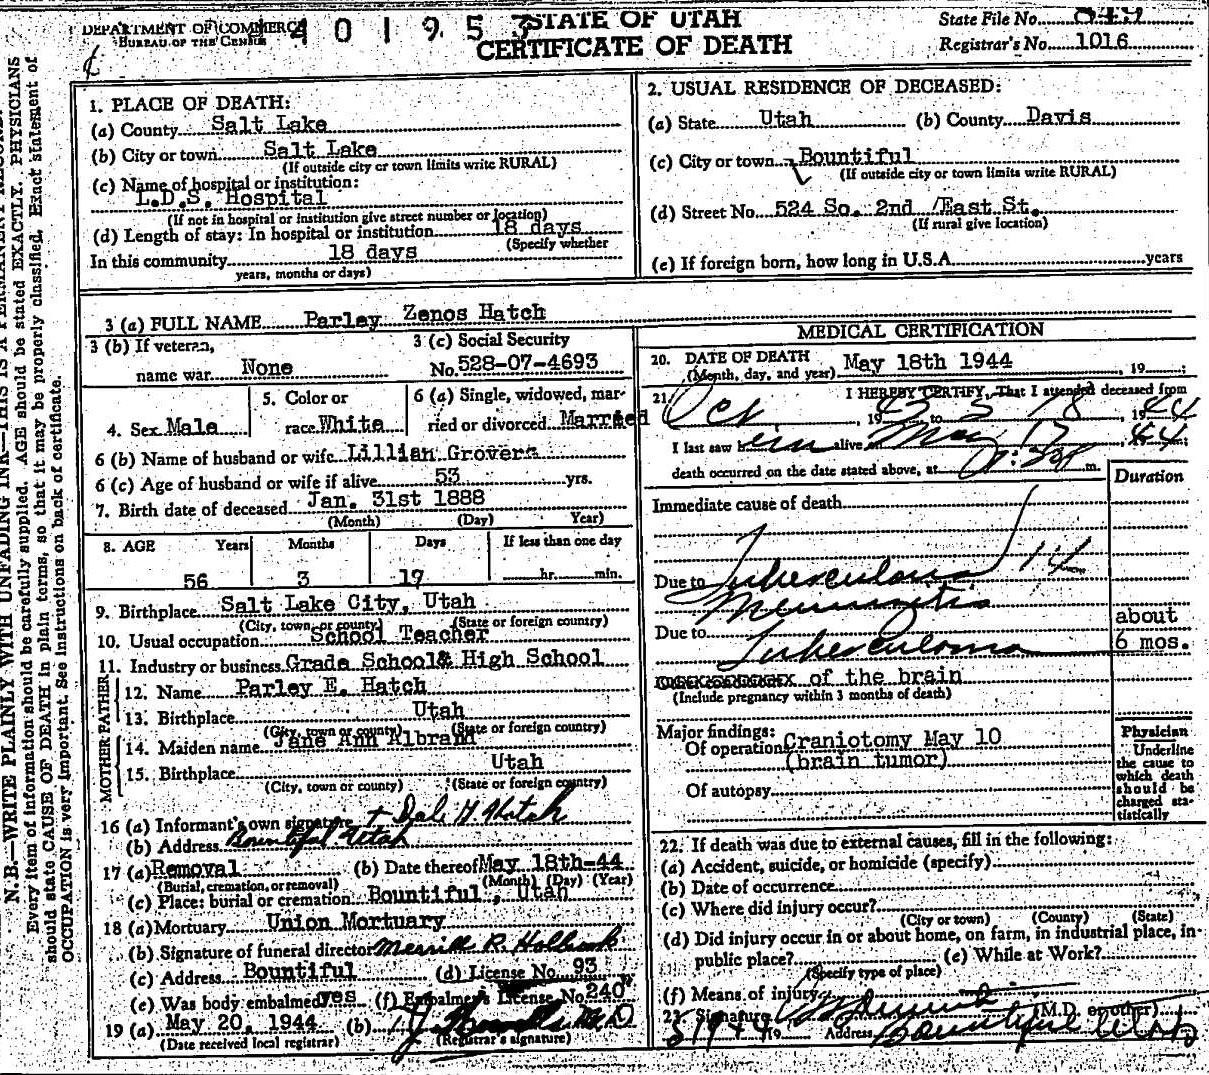 DEPARTMENT OF COMMERCE
BUREAU OF THE CENSUS
401953
STATE OF UTAH
CERTIFICATE OF DEATH
State File No. 849
Registrar's No. 1016
N.B.—WRITE PLAINLY WITH UNFADING INK—THIS IS A PERMANENT RECORD.
Every item of information should be carefully supplied. AGE should be stated EXACTLY. PHYSICIANS
should state CAUSE OF DEATH in plain terms, so that it may be properly classified. Exact statement of
OCCUPATION is very important. See instructions on back of certificate.
1. PLACE OF DEATH:
(a) County Salt Lake
(b) City or town Salt Lake
(If outside city or town limits write RURAL)
(c) Name of hospital or institution:
L.D.S. Hospital
(If not in hospital or institution give street number or location)
(d) Length of stay: In hospital or institution 18 days
(Specify whether
In this community 18 days
years, months or days)
2. USUAL RESIDENCE OF DECEASED:
(a) State Utah (b) County Davis
(c) City or town Bountiful
(If outside city or town limits write RURAL)
(d) Street No. 524 So. 2nd East St.
(If rural give location)
(e) If foreign born, how long in U.S.A. years
3 (a) FULL NAME Parley Zenos Hatch
3 (b) If veteran,
name war None
3 (c) Social Security
No. 528-07-4693
4. Sex Male
5. Color or
race White
6 (a) Single, widowed, mar-
ried or divorced Married
6 (b) Name of husband or wife Lillian Grovers
6 (c) Age of husband or wife if alive 53 yrs.
7. Birth date of deceased Jan. 31st 1888
(Month) (Day) Year)
8. AGE Years Months Days If less than one day
56 3 17 hr. min.
9. Birthplace Salt Lake City, Utah
(City, town, or county) (State or foreign country)
10. Usual occupation School Teacher
11. Industry or business Grade School & High School
FATHER
12. Name Parley E. Hatch
13. Birthplace Utah
(City, town or county) (State or foreign country)
MOTHER
14. Maiden name Jane Ann Albrand
15. Birthplace Utah
(City, town or county) (State or foreign country)
16 (a) Informant's own signature Dale H Hatch
(b) Address Bountiful Utah
17 (a) Removal (b) Date thereof May 18th-44
(Burial, cremation, or removal) (Month) (Day) (Year)
(c) Place: burial or cremation Bountiful, Utah
18 (a) Mortuary Union Mortuary
(b) Signature of funeral director Merrill R. Holbrook
(c) Address Bountiful (d) License No. 93
(e) Was body embalmed yes (f) Embalmer's License No. 240
19 (a) May 20, 1944 (b)
(Date received local registrar) (Registrar's signature)
MEDICAL CERTIFICATION
20. DATE OF DEATH May 18th 1944, 19 ;
(Month, day, and year)
21. I HEREBY CERTIFY, That I attended deceased from
Oct, 1943 to 5 18, 1944
I last saw him alive on May 17, 44;
death occurred on the date stated above, at m.
Duration
Immediate cause of death
Due to Tuberculoma
Meningitis
Due to Tuberculoma
about
6 mos.
of the brain
(Include pregnancy within 3 months of death)
Major findings:
Of operation Craniotomy May 10
(brain tumor)
Of autopsy
Physician
Underline
the cause to
which death
should be
charged sta-
tistically
22. If death was due to external causes, fill in the following:
(a) Accident, suicide, or homicide (specify)
(b) Date of occurrence
(c) Where did injury occur?
(City or town) (County) (State)
(d) Did injury occur in or about home, on farm, in industrial place, in
public place? (e) While at Work?
(Specify type of place)
(f) Means of injury
23. Signature (M.D. or other)
5 19 44 19 Address Bountiful Utah